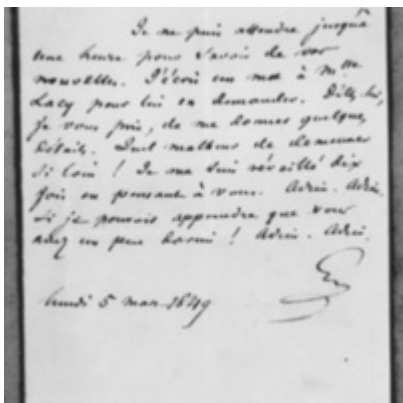 Je ne puis attendre jusqu'à
une heure pour savoir de vos
nouvelles. J'écris un mot à M.lle
Lacy pour lui en demander. Dites lui,
je vous prie, de me donner quelques
détails. Quel malheur de demeurer
si loin ! Je me suis réveillé dix
fois en pensant à vous. Adieu. Adieu.
Si je pouvais apprendre que vous
avez un peu dormi ! Adieu. Adieu.
lundi 5 mars 1849